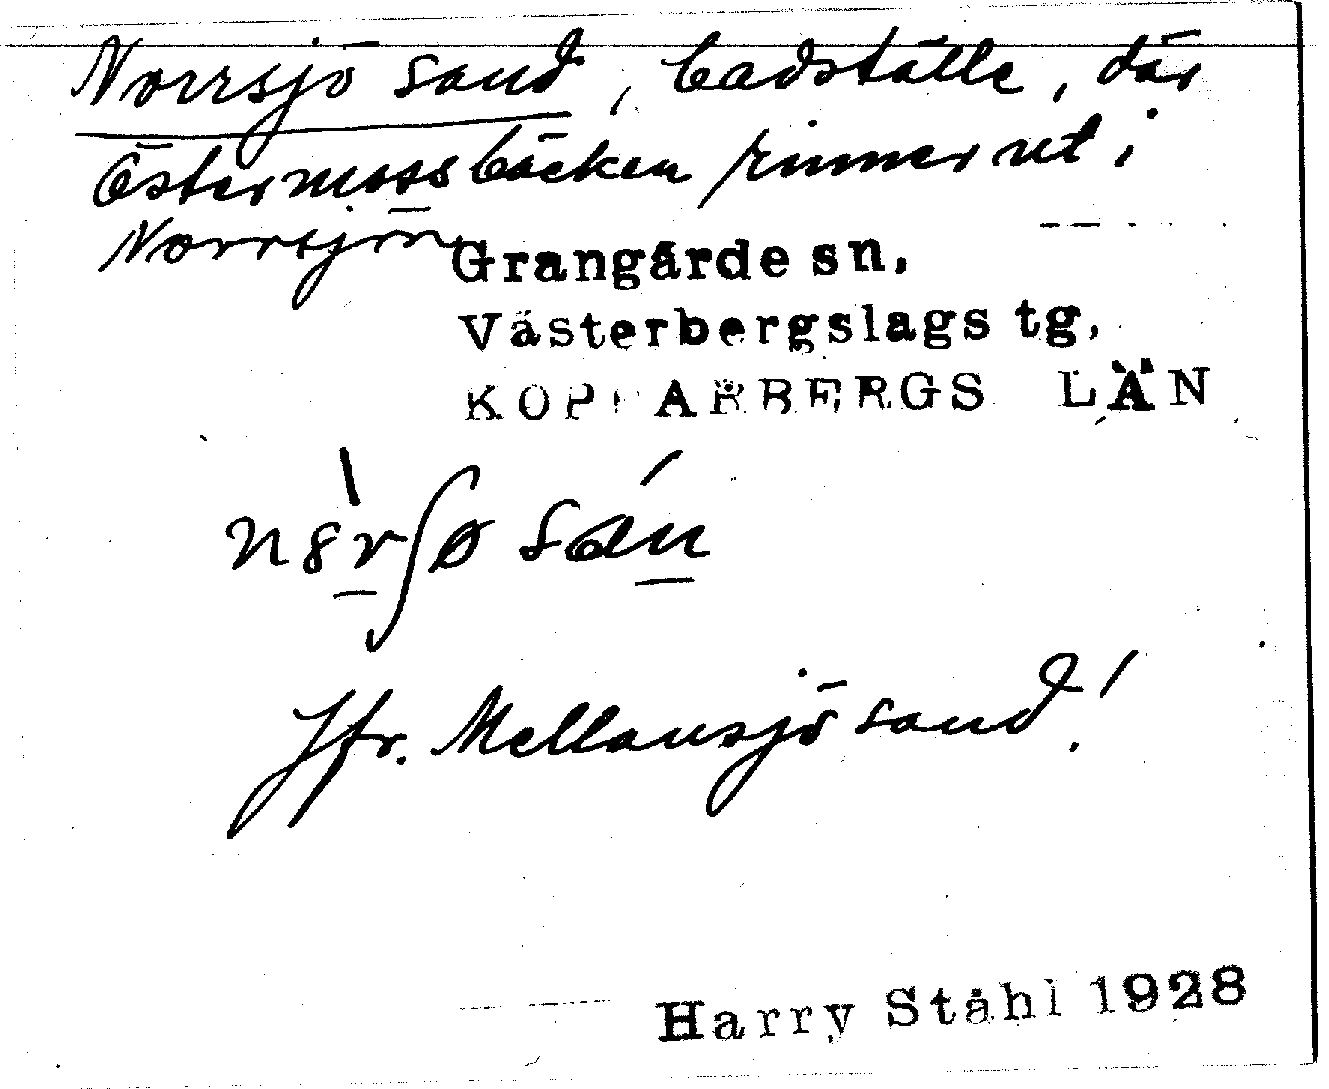 Norrsjö sand, badställe, där
Östermossbäcken rinner ut i
Norrsjön
Grangärde sn,
Västerbergslags tg,
KOPPARBERGS LÄN
nòrʃø sán
Jfr. Mellansjö sand!
Harry Ståhl 1928